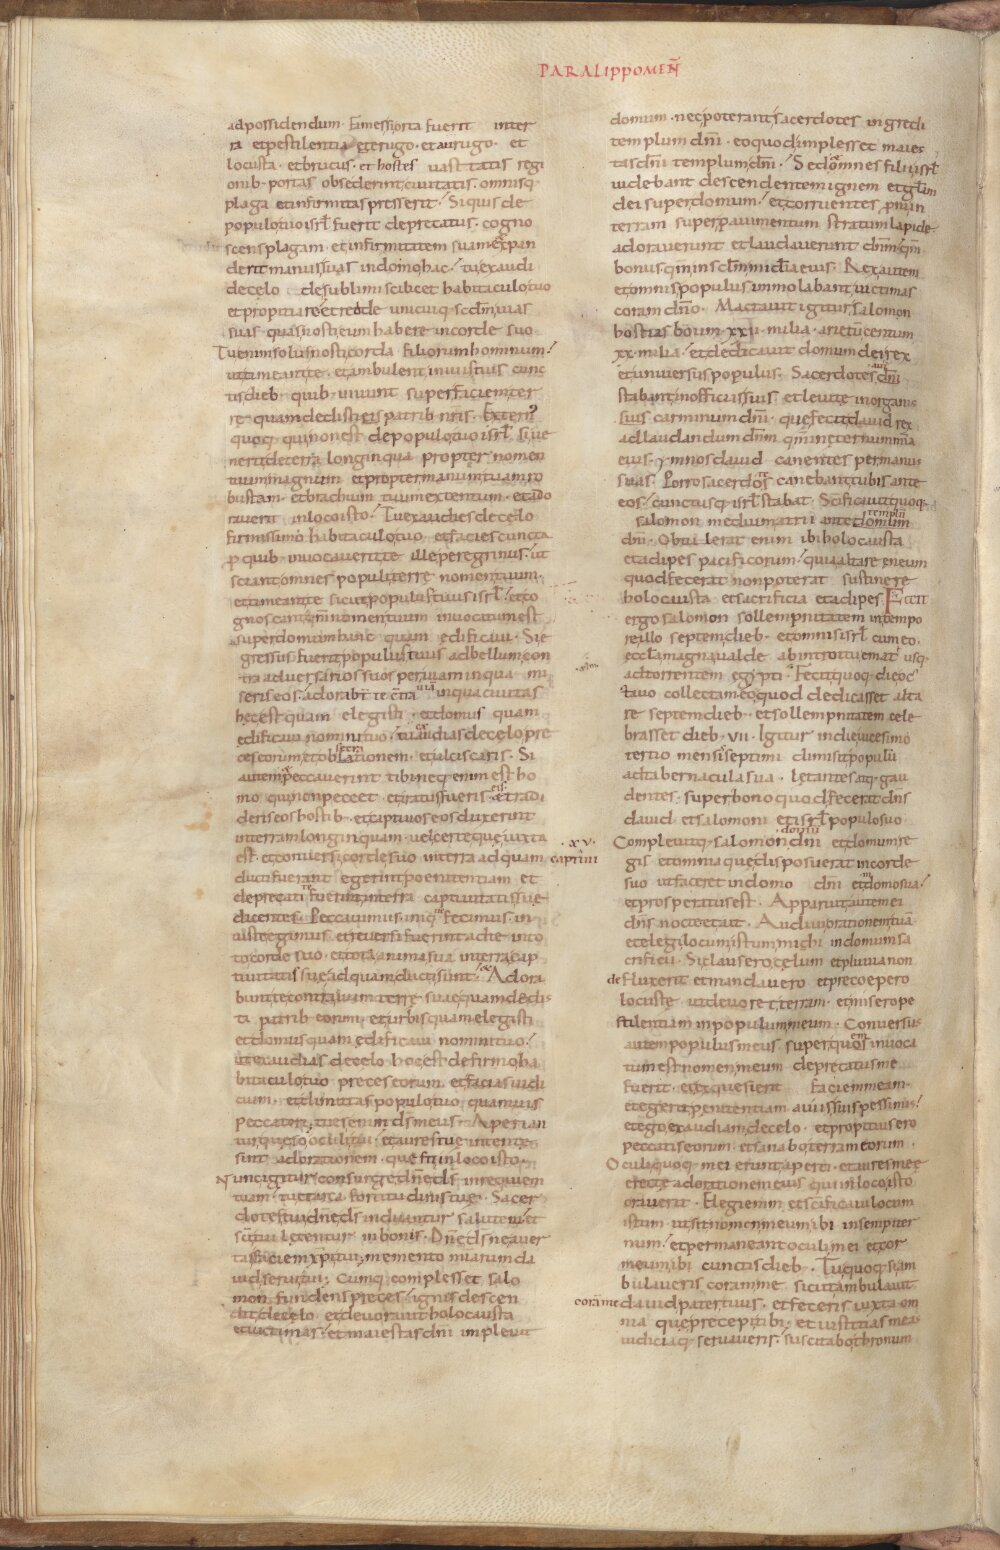 PARALIPPOMEN̄
ad possidendum· Fames si orta fuerit inter
ra et pestilentia et erugo· et aurugo· et
locusta· et brucus· et hostes vastitatis regi
onib· portas obsederint civitatis· omnisq·
plaga et infirmitas presserit· Siquis de
populo tuo isrl̄ fuerit deprecatus· cogno
scens plagam· et infirmitatem suam et expan
derit manus suas in domo hac· tu exaudi
de celo de sublimi scilicet habitaculo tuo
et propitiare et redde unicuiq· scd̄m vias
suas quas nosti eum habere in corde suo
Tu enim solus nosti corda filiorum hominum·
ut timeant te· et ambulent in viis tuis cunc
tis dieb· quib· vivunt super faciem ter
re quam dedisti eis patrib· nr̄is· Extern̄
quoq· qui non est de populo tuo isrl̄· si ve
nerit de terra longinqua propter nomen
tuum magnum et propter manum tuam ro
bustam· et brachium tuum extentum· et ado
raverit in loco isto· Tu exaudies de celo
firmissimo habitaculo tuo et facies cuncta
p̄ quib· invocaverit te ille peregrinus· ut
sciant omnes populi terre nomen tuum·
et timeant te sicut populus tuus isrl̄· et co
gnoscant qm̄ nomen tuum invocatum est
super domum hanc quam edificavi· Si e
gressus fuerit populus tuus ad bellum con
tra adversarios suos per viam in qua mi
seris eos· adorabt̄ te c̄tra via in qua civitas
hec est quam elegisti· et domus quam
edificavi nomini tuo· tu audias de celo pre
ces eorum et obsecrationem· et ulciscaris· Si
autem peccaverint tibi neq· enim est ho
mo qui non peccet et iratus fueris eis· et tradi
deris eos hostib· et captivos eos duxerint
in terram longinquam· vel certe que iuxta
est· et conversi corde suo in terra ad quam captivi
ducti fuerant egerint poenitentiam et
deprecati te fuerint in terra captivitatis sue
dicentes· Peccavimus· iniq· fecimus· in
iuste egimus et reversi fuerint ad te in to
to corde suo· et tota anima sua in terra cap
tivitatis sue ad quam ducti sunt· Adora
bunt te contra viam terre sue quam dedis
ti patrib· eorum· et urbis quam elegisti
et domus quam edificavi nomini tuo·
ut exaudias de celo hoc est de firmo ha
bitaculo tuo preces eorum et facias iudi
cium· et dimittas populo tuo quamvis
peccatori· tu es enim ds̄ meus· Aperian
tur queso oculi tui· et aures tue intente
sint ad orationem· que fit in loco isto·
Nunc igitur consurge dn̄e ds̄ in requiem
tuam· tu et arca fortitudinis tue· Sacer
dotes tui dn̄e ds̄ induantur salutem et
sc̄i tui letentur in bonis· Dn̄e ds̄ ne aver
tas faciem xp̄i tui· memento misericordiarum da
vid servi tui· Cumq· complesset salo
mon fundens preces· ignis descen
dit de celo et devoravit holocausta
et victimas· et maiestas dn̄i implevit
domum· nec poterant sacerdotes ingredi
templum dn̄i· eo quod implesset maies
tas dn̄i templum dn̄i· Sed omnes filii isrl̄
videbant descendentem ignem et gl̄am
dei super domum· et corruentes proni in
terram super pavimentum stratum lapide
adoraverunt et laudaverunt dn̄m· qm̄
bonus qm̄ in sclm̄ mid̄ia eius· Rex autem
et omnis populus immolabant victimas
coram dn̄o· Mactavit igitur salomon
hostias boum· xxii· milia· arietū centum
xx· milia· et dedicavit domum dei rex
et universus populus· Sacerdotes autem
stabant in officiis suis et levite in organis
suis carminum dn̄i· que fecit david rex
ad laudandum dn̄m qm̄ in eternum m̄ia
eius· ymnos david canentes per manus
suas· Porro sacerdotes canebant tubis ante
eos· cunctusq· isrl̄ stabat· Sc̄ificavit quoq·
salomon medium atrii ante templū domum
dn̄i· Obtulerat enim ibi holocausta
et adipes pacificorum· quia altare eneum
quod fecerat non poterat sustinere
holocausta et sacrificia et adipes· Fecit
ergo salomon sollempnitatem in tempo
re illo septem dieb· et omnis isrl̄ cum eo·
eccl̄a magna valde ab introitu emath usq·
ad torrentem egypti· Fecitq· die oc
tavo collectam eo quod dedicasset alta
re septem dieb· et sollempnitatem cele
brasset dieb· vii· Igitur in die vicesimo
tertio mensis septimi dimisit populū
ad tabernacula sua· letantes atq· gau
dentes· super bono quod fecerat dn̄s
david et salomoni et isrl̄ populo suo
·xv· Complevitq· salomon domū dn̄i et domum re
gis et omnia que disposuerat in corde
suo ut faceret in domo dn̄i et in domo sua·
et prosperatus est· Apparuit autem ei
dn̄s nocte et ait· Audivi orationem tuā
et elegi locum istum michi in domum sa
crificii· Si clausero celum et pluvia non
defluxerit et mandavero et precepero
locuste ut devoret terram· et misero pe
stilentiam in populum meum· Conversus
autem populus meus super quos invoca
tum est nomen meum deprecatus me
fuerit et exquesierit faciem meam·
et egerit penitentiam a viis suis pessimis·
et ego exaudiam de celo· et propitius ero
peccatis eorum· et sanabo terram eorum·
Oculi quoq· mei erunt aperti· et aures mee
erecte ad orationem eius qui in loco isto
oraverit· Elegi enim et sc̄ificavi locum
istum· ut sit nomen meum ibi in sempiter
num· et permaneant oculi mei et cor
meum ibi cunctis dieb· Tu quoq· si am
bulaveris coram me sicut ambulavit
coram me david pater tuus· et feceris iuxta om
nia que precepi tibi· et iustitias meas
iudiciaq· servaveris· suscitabo thronum